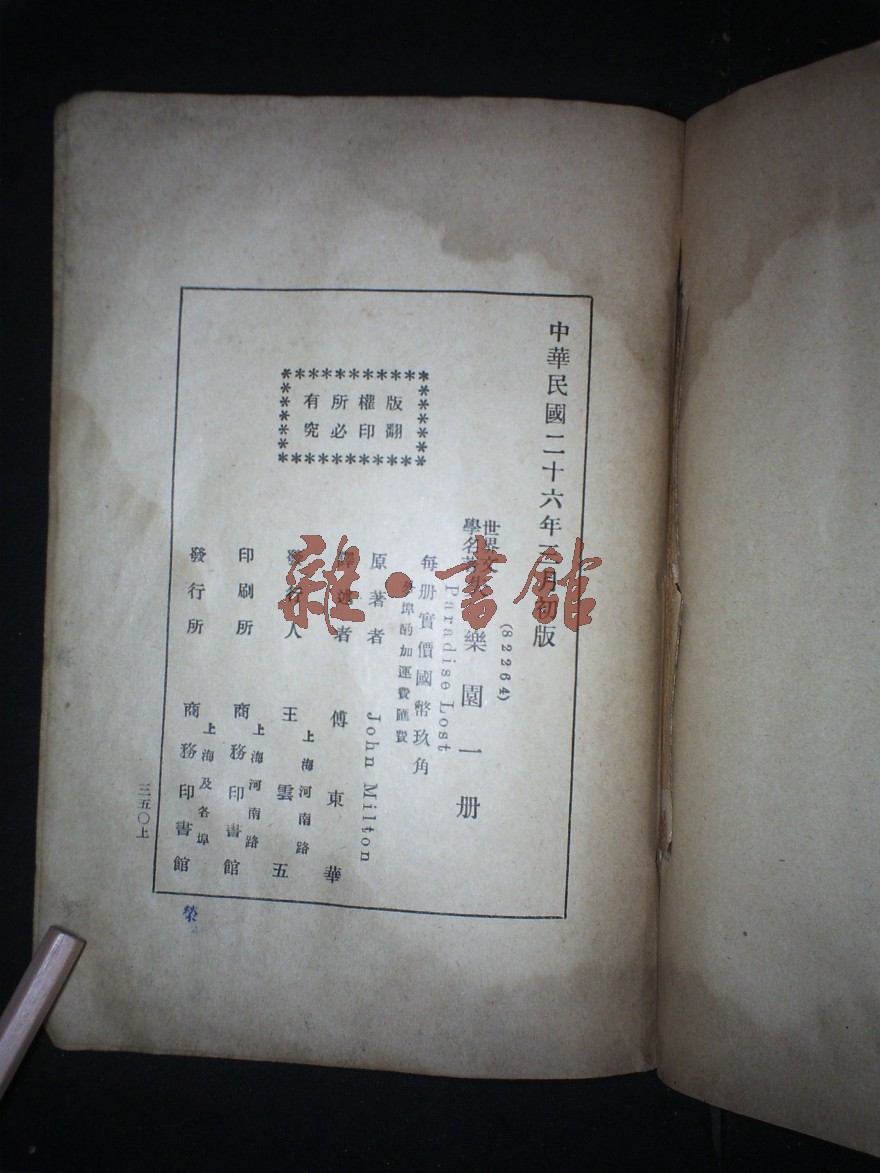 中華民國二十六年三月初版
(82264)
世界文學名著失樂園一册
Paradise Lost
每册實價國幣玖角
外埠酌加運費匯費
原著者 John Milton
譯述者 傅東華
發行人 王雲五
上海河南路
印刷所 商務印書館
上海河南路
發行所 商務印書館
上海及各埠
版權所有
翻印必究
三五〇上
榮
雜·書館